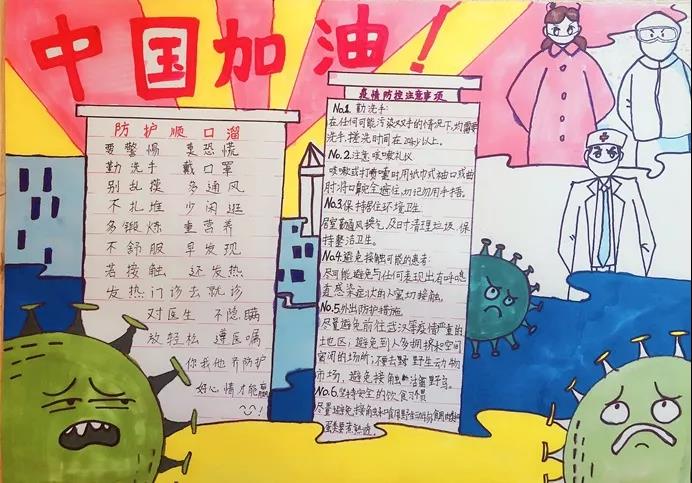 中国加油!
防护顺口溜
要警惕 莫恐慌
勤洗手 戴口罩
别乱摸 多通风
不扎堆 少闲逛
多锻炼 重营养
不舒服 早发现
若接触 还发热
发热门诊去就诊
对医生 不隐瞒
放轻松 遵医嘱
你我他齐防护
好心情才能赢
疫情防控注意事项
No.1. 勤洗手:
在任何可能污染双手的情况下,均需要
洗手,搓洗时间在
No.2.注意咳嗽礼仪
咳嗽或打喷嚏时用纸巾或袖口或曲
肘将口鼻完全遮住,勿记勿用手捂。
No.3.保持居住环境卫生
居室勤通风换气,及时清理垃圾,保
持整洁卫生。
No.4.避免接触可能的患者:
尽可能避免与任何表现出有呼吸
道感染症状的人密切接触。
No.5.外出防护措施
尽量避免前往武汉等疫情严重的
地区;避免到人多拥挤和空间
密闭的场所;不要去野野生动物
市场,避免接触 活畜野鸟。
No.6.坚持安全的饮食习惯
尽量避免接触和食用野生动物
蛋类要煮熟吃。